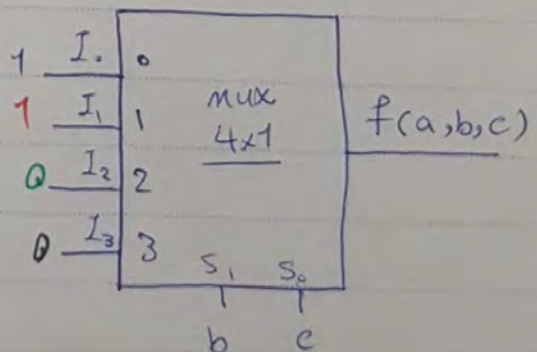 1 I. 0
1 I₁ 1
0 I₂ 2
0 I₃ 3
mux
4x1
f(a,b,c)
S₁ S₀
b c